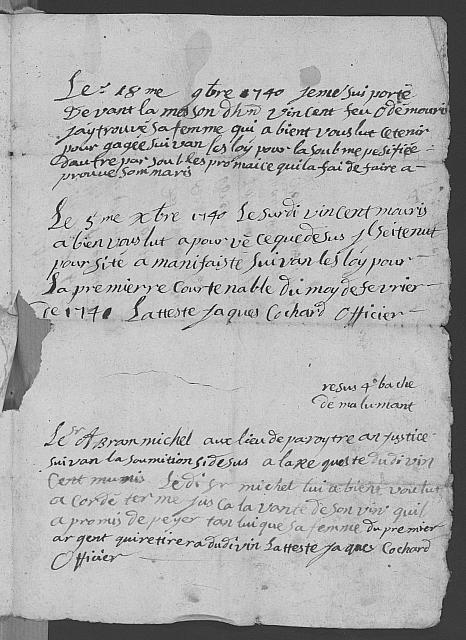 Le 18me 9bre 1740 Jeme sui porté
devant la meson dhn vincent feu Odé mouris
Jay trouvé sa femme qui a bient vous lut ce tenir
pour gagée suivan les loy pour la soubme pesifiée
dautre par soubles promaice qui la fai de faire a
prouvé son maris
Le 5me xbre 1740 Le surdi vincent mouris
a bien vous lut a pour vé ce que desus Jl seitenut
pour sité a manifaiste suivan les loy pour
La premierre Court enable du moy defevrier
de 1741 Latteste Jaques Cochard Officier
resus 4 bache
de malumant
Le Sr Abran michel aux lieu de paroytre an justice
suivan la soumition sidesus a la requeste du di vin
Cent muris Ledi Sr michel lui a bient voulut
a cordé terme jusca la vante de son vin quil
a promis de peyer tan lui que sa femme du premier
argent qui retirera dudi vin Latteste Jaques Cochard
Officier